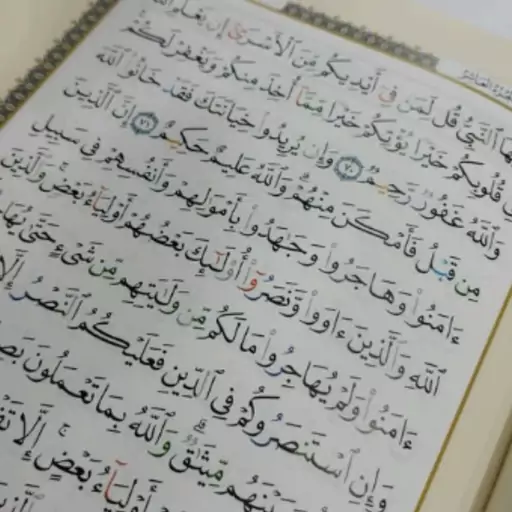 ٱلنَّبِىُّ قُل لِّمَن فِىٓ أَيْدِيكُم مِّنَ ٱلْأَسْرَىٰٓ إِن
قُلُوبِكُمْ خَيْرًا يُؤْتِكُمْ خَيْرًا مِّمَّآ أُخِذَ مِنكُمْ وَيَغْفِرْ لَكُمْ
وَٱللَّهُ غَفُورٌ رَّحِيمٌ ٧٠ وَإِن يُرِيدُوا۟ خِيَانَتَكَ فَقَدْ خَانُوا۟ ٱللَّهَ
مِن قَبْلُ فَأَمْكَنَ مِنْهُمْ وَٱللَّهُ عَلِيمٌ حَكِيمٌ ٧١ إِنَّ ٱلَّذِينَ
ءَامَنُوا۟ وَهَاجَرُوا۟ وَجَـٰهَدُوا۟ بِأَمْوَٰلِهِمْ وَأَنفُسِهِمْ فِى سَبِيلِ
ٱللَّهِ وَٱلَّذِينَ ءَاوَوا۟ وَّنَصَرُوٓا۟ أُو۟لَـٰٓئِكَ بَعْضُهُمْ أَوْلِيَآءُ بَعْضٍ وَٱلَّذِينَ
ءَامَنُوا۟ وَلَمْ يُهَاجِرُوا۟ مَا لَكُم مِّن وَلَـٰيَتِهِم مِّن شَىْءٍ حَتَّىٰ يُهَا
وَإِنِ ٱسْتَنصَرُوكُمْ فِى ٱلدِّينِ فَعَلَيْكُمُ ٱلنَّصْرُ إِلَّا
وَبَيْنَهُم مِّيثَـٰقٌ وَٱللَّهُ بِمَا تَعْمَلُونَ
أَوْلِيَآءُ بَعْضٍ إِلَّا